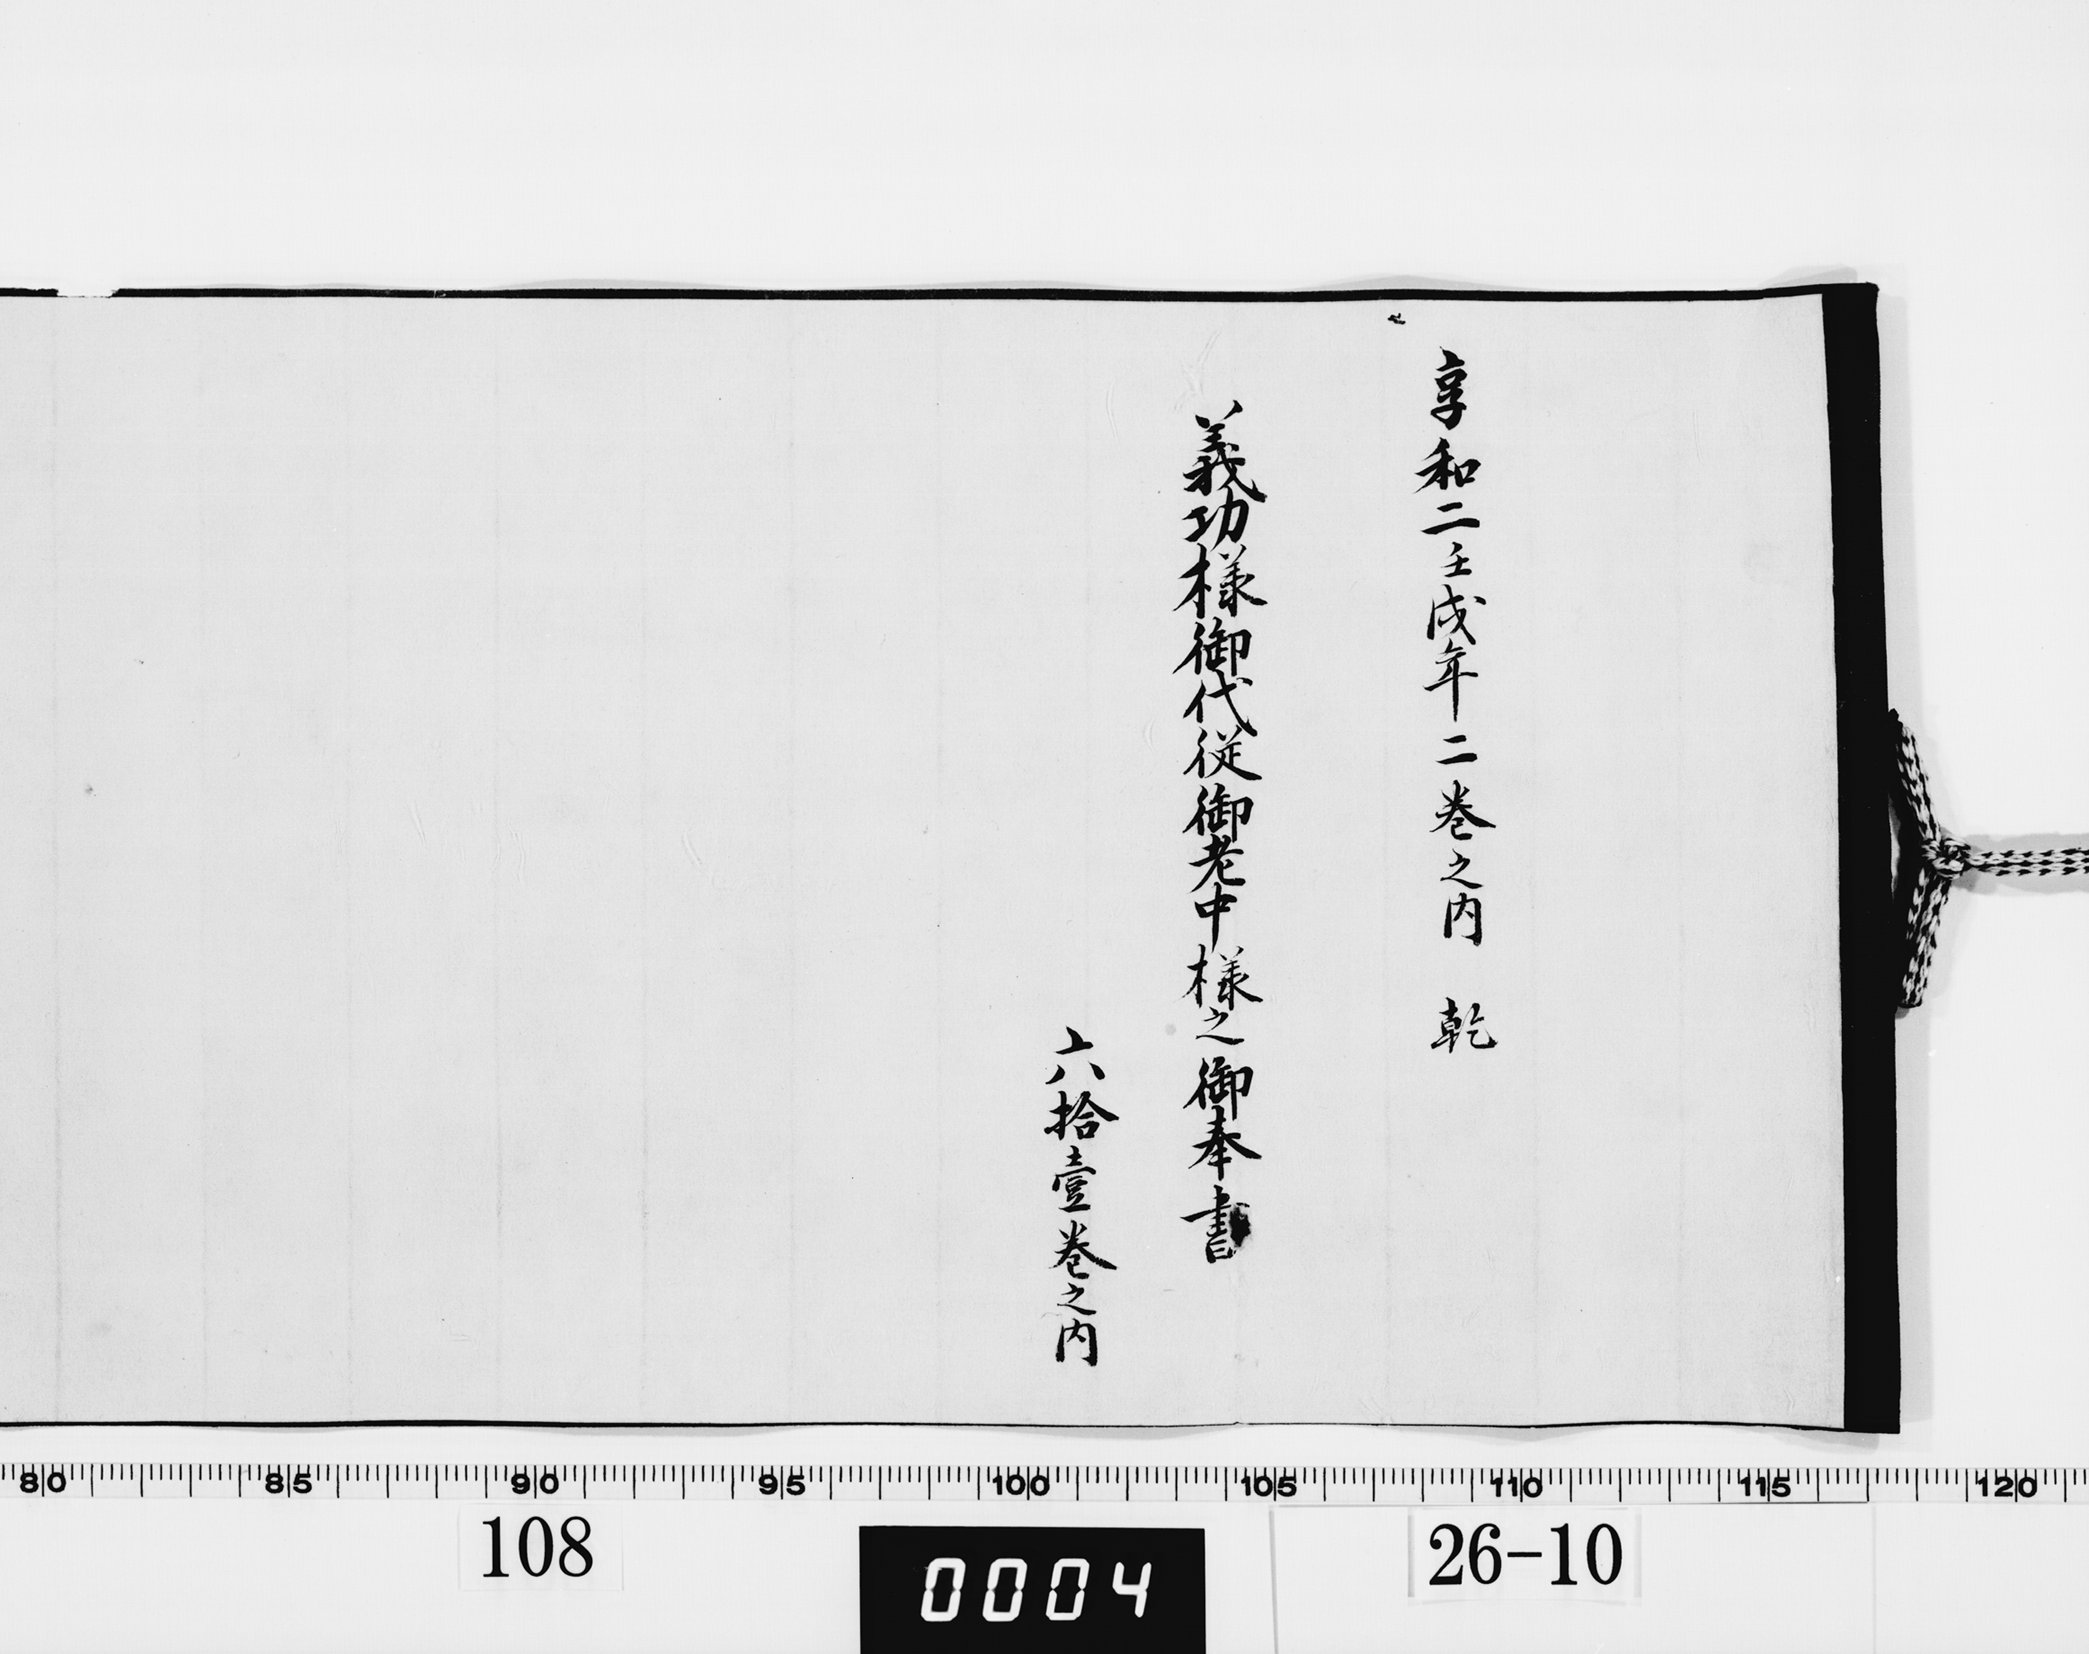 享和二壬戌年二巻之内　乾
義功様御代従御老中様之御奉書
六拾壹巻之内
80 85 90 95 100 105 110 115 120
108
0004
26-10